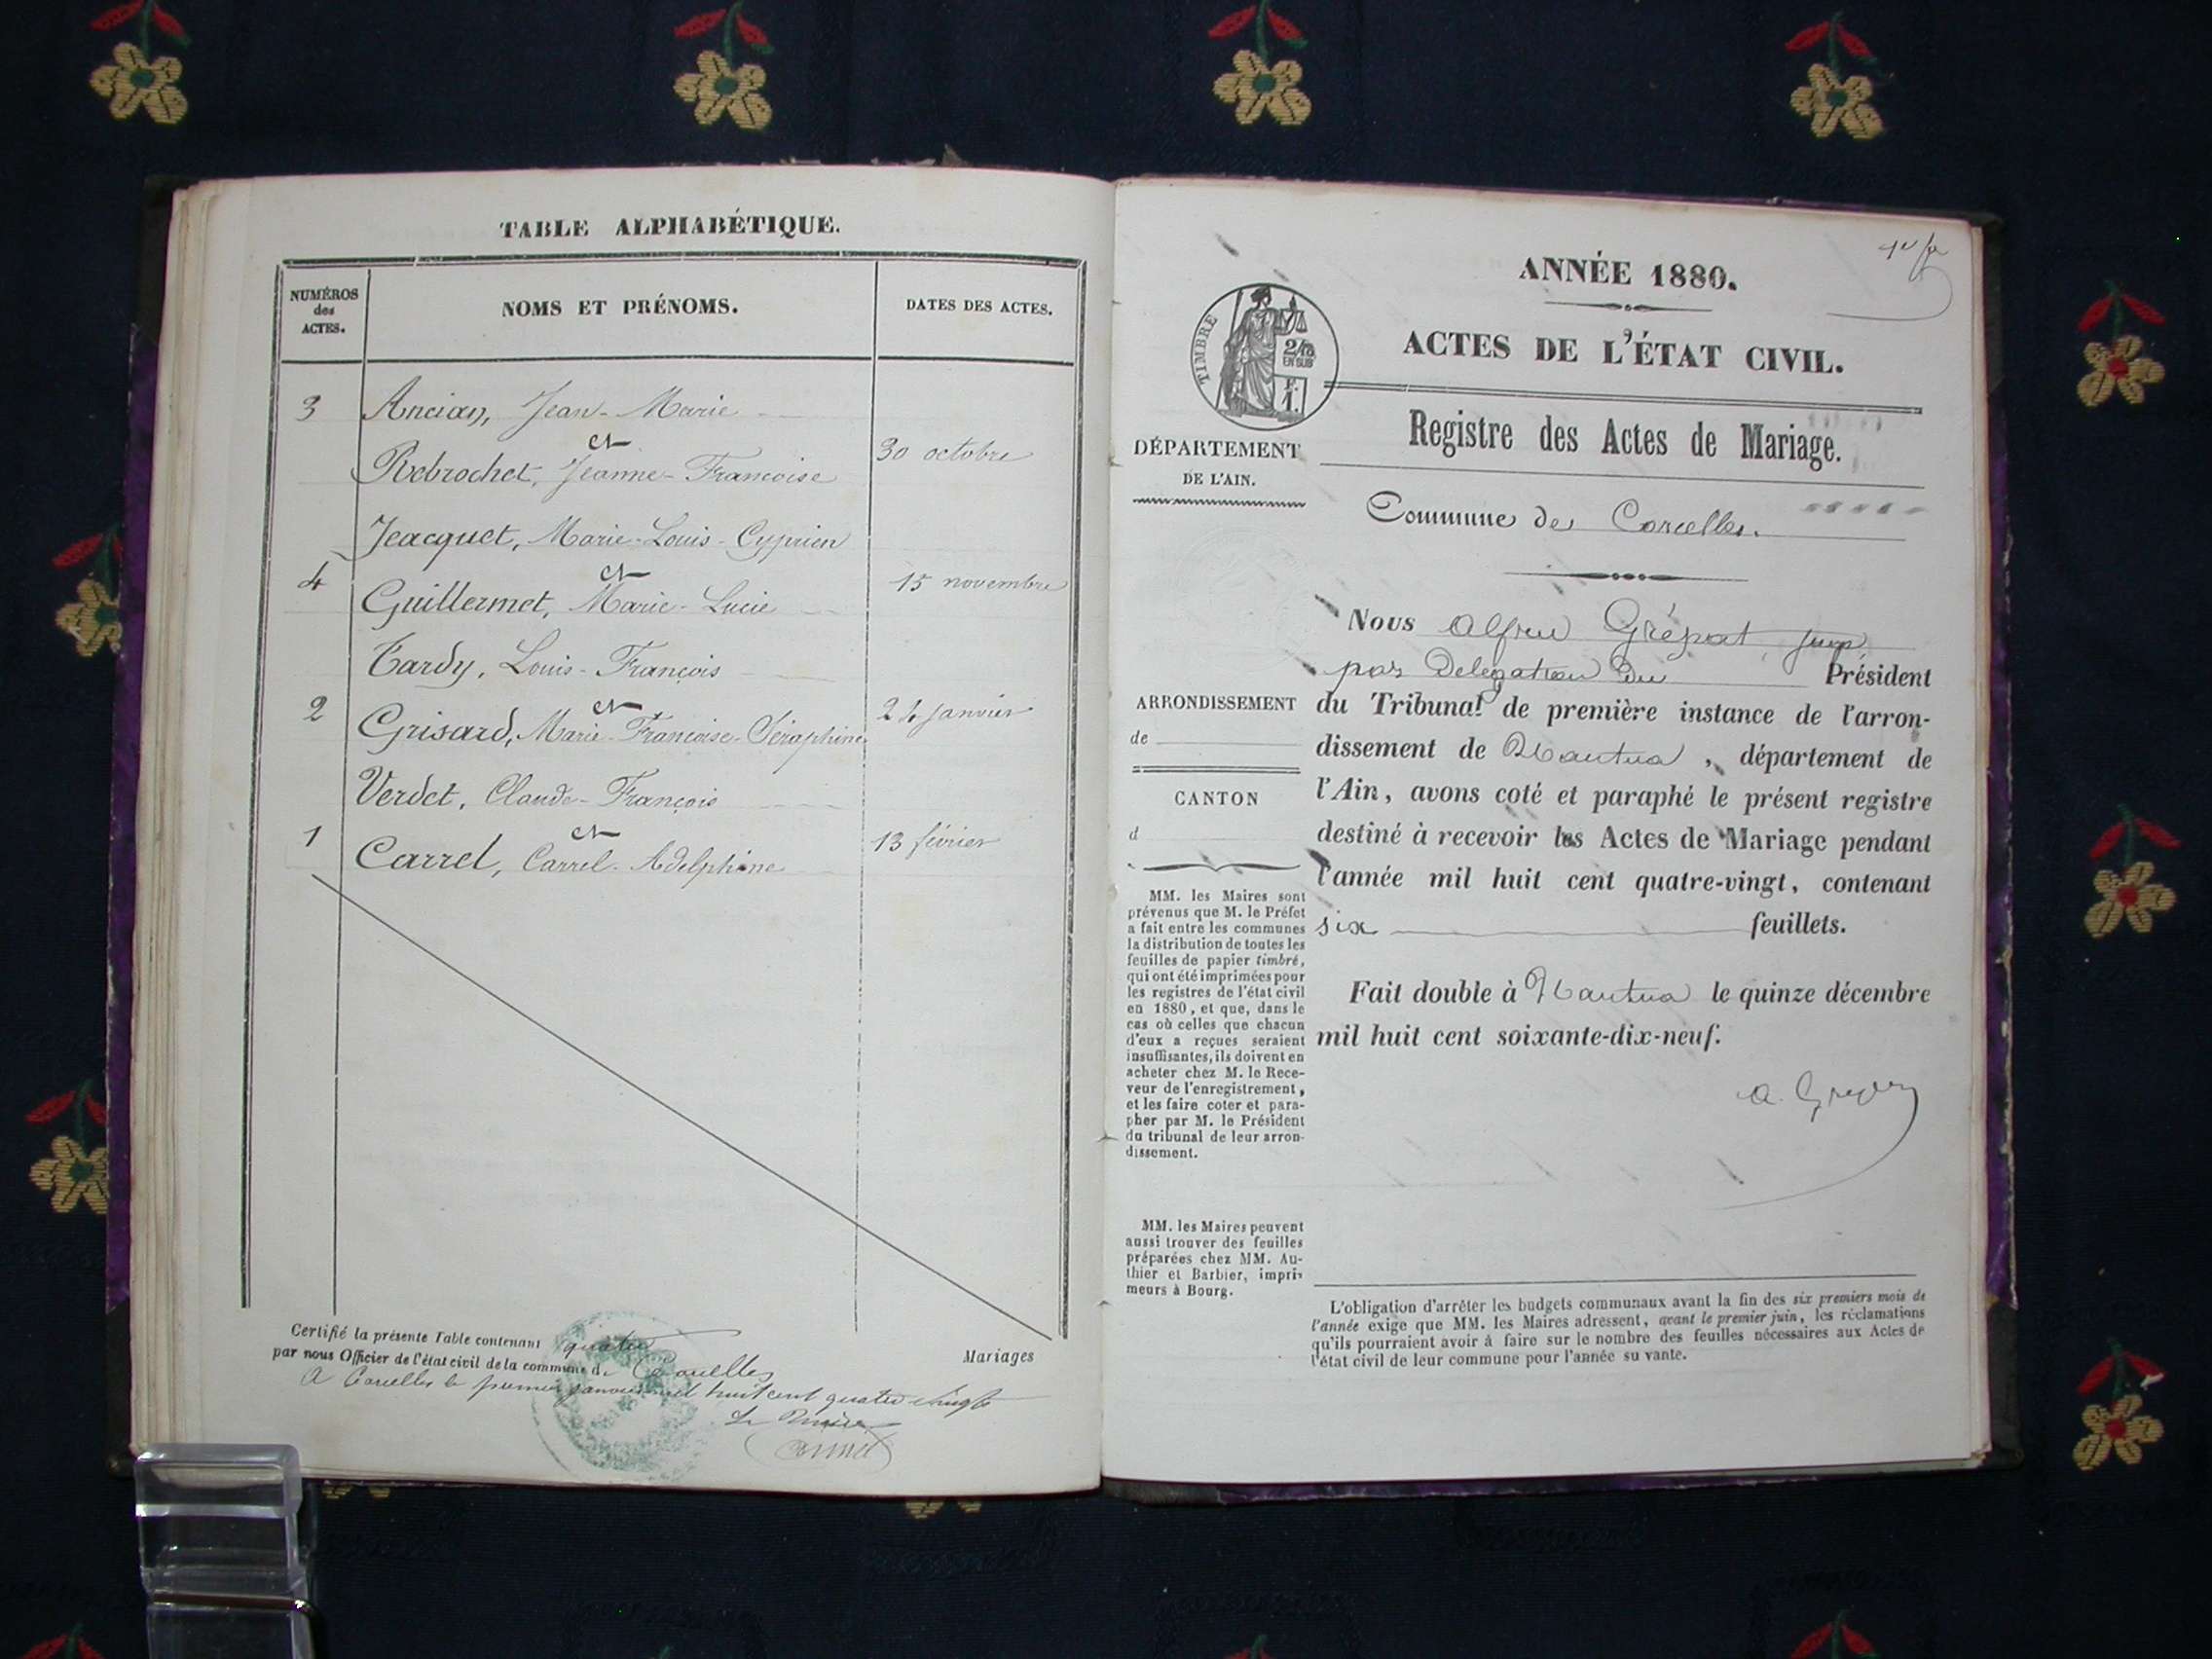 TABLE ALPHABÉTIQUE.
NUMÉROS
des
ACTES.
NOMS ET PRÉNOMS.
DATES DES ACTES.
3 Ancian, Jean-Marie
et
Rebrochet, Jeanne-Françoise 30 octobre
Jeacquet, Marie-Louis-Cyprien
4 et 15 novembre
Guillermet, Marie-Lucie
Tardy, Louis-François
2 et 24 janvier
Grisard, Marie-Françoise-Séraphine
Verdet, Claude-François
1 et 13 février
Carrel, Carrel-Adelphine
Certifié la présente Table contenant quatre Mariages
par nous Officier de l'état civil de la commune de Corcelles
A Corcelles le premier janvier mil huit cent quatre-vingt
Le Maire
1er
ANNÉE 1880.
ACTES DE L'ÉTAT CIVIL.
TIMBRE
2/10
EN SUS
1 F.
Registre des Actes de Mariage.
DÉPARTEMENT
DE L'AIN.
Commune de Corcelles.
ARRONDISSEMENT
de
CANTON
d
MM. les Maires sont
prévenus que M. le Préfet
a fait entre les communes
la distribution de toutes les
feuilles de papier timbré,
qui ont été imprimées pour
les registres de l'état civil
en 1880, et que, dans le
cas où celles que chacun
d'eux a reçues seraient
insuffisantes, ils doivent en
acheter chez M. le Rece-
veur de l'enregistrement,
et les faire coter et para-
pher par M. le Président
du tribunal de leur arron-
dissement.
MM. les Maires peuvent
aussi trouver des feuilles
préparées chez MM. Au-
thier et Barbier, impri-
meurs à Bourg.
Nous Alfred juge
par Delegation du Président
du Tribunal de première instance de l'arron-
dissement de Nantua, département de
l'Ain, avons coté et paraphé le présent registre
destiné à recevoir les Actes de Mariage pendant
l'année mil huit cent quatre-vingt, contenant
six feuillets.
Fait double à Nantua le quinze décembre
mil huit cent soixante-dix-neuf.
L'obligation d'arrêter les budgets communaux avant la fin des six premiers mois de
l'année exige que MM. les Maires adressent, avant le premier juin, les réclamations
qu'ils pourraient avoir à faire sur le nombre des feuilles nécessaires aux Actes de
l'état civil de leur commune pour l'année su vante.